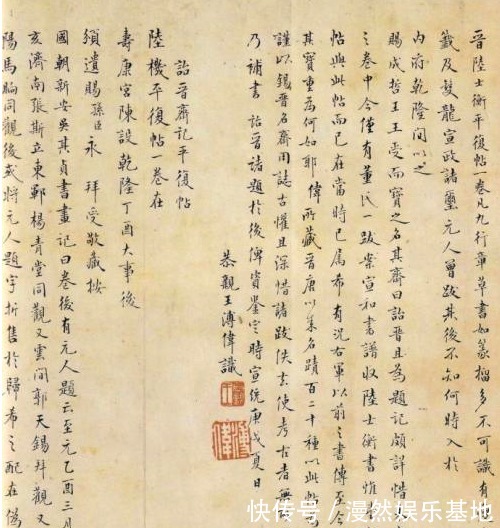 晉陸士衡平復帖一卷凡九行章草書如篆榴多不可識有
籤及雙龍宣政諸璽元人曾跋其後不知何時入於
內府乾隆間以之
賜成哲王王受而寶之名其齋曰詒晉且為題記頗詳惜
之卷中今僅有董氏一跋案宣和書譜收陸士衡書惟
帖與此帖而已在當時已屬希有況右軍以前之書傳至今
其寶重為何如耶偉所藏晉唐以來名蹟百二十種以此
謹以錫晉名齋用誌古懽且深惜諸跋佚去使考古者無
乃補書詒晉諸題於後俾資鑒定時宣統庚戌夏日
恭親王溥偉識
詒晉齋記平復帖
陸機平復帖一卷在
壽康宮陳設乾隆丁酉大事後
頒遺賜孫臣永 拜受敬藏按
國朝新安吳其貞書畫記曰卷後有元人題云至元乙酉三月
亥濟南張斯立東鄆楊青堂同觀又雲間郭天錫拜觀又
陽馬昫同觀後感將元人題字折售於歸希之配在偽
快传号/漫然娱乐基地